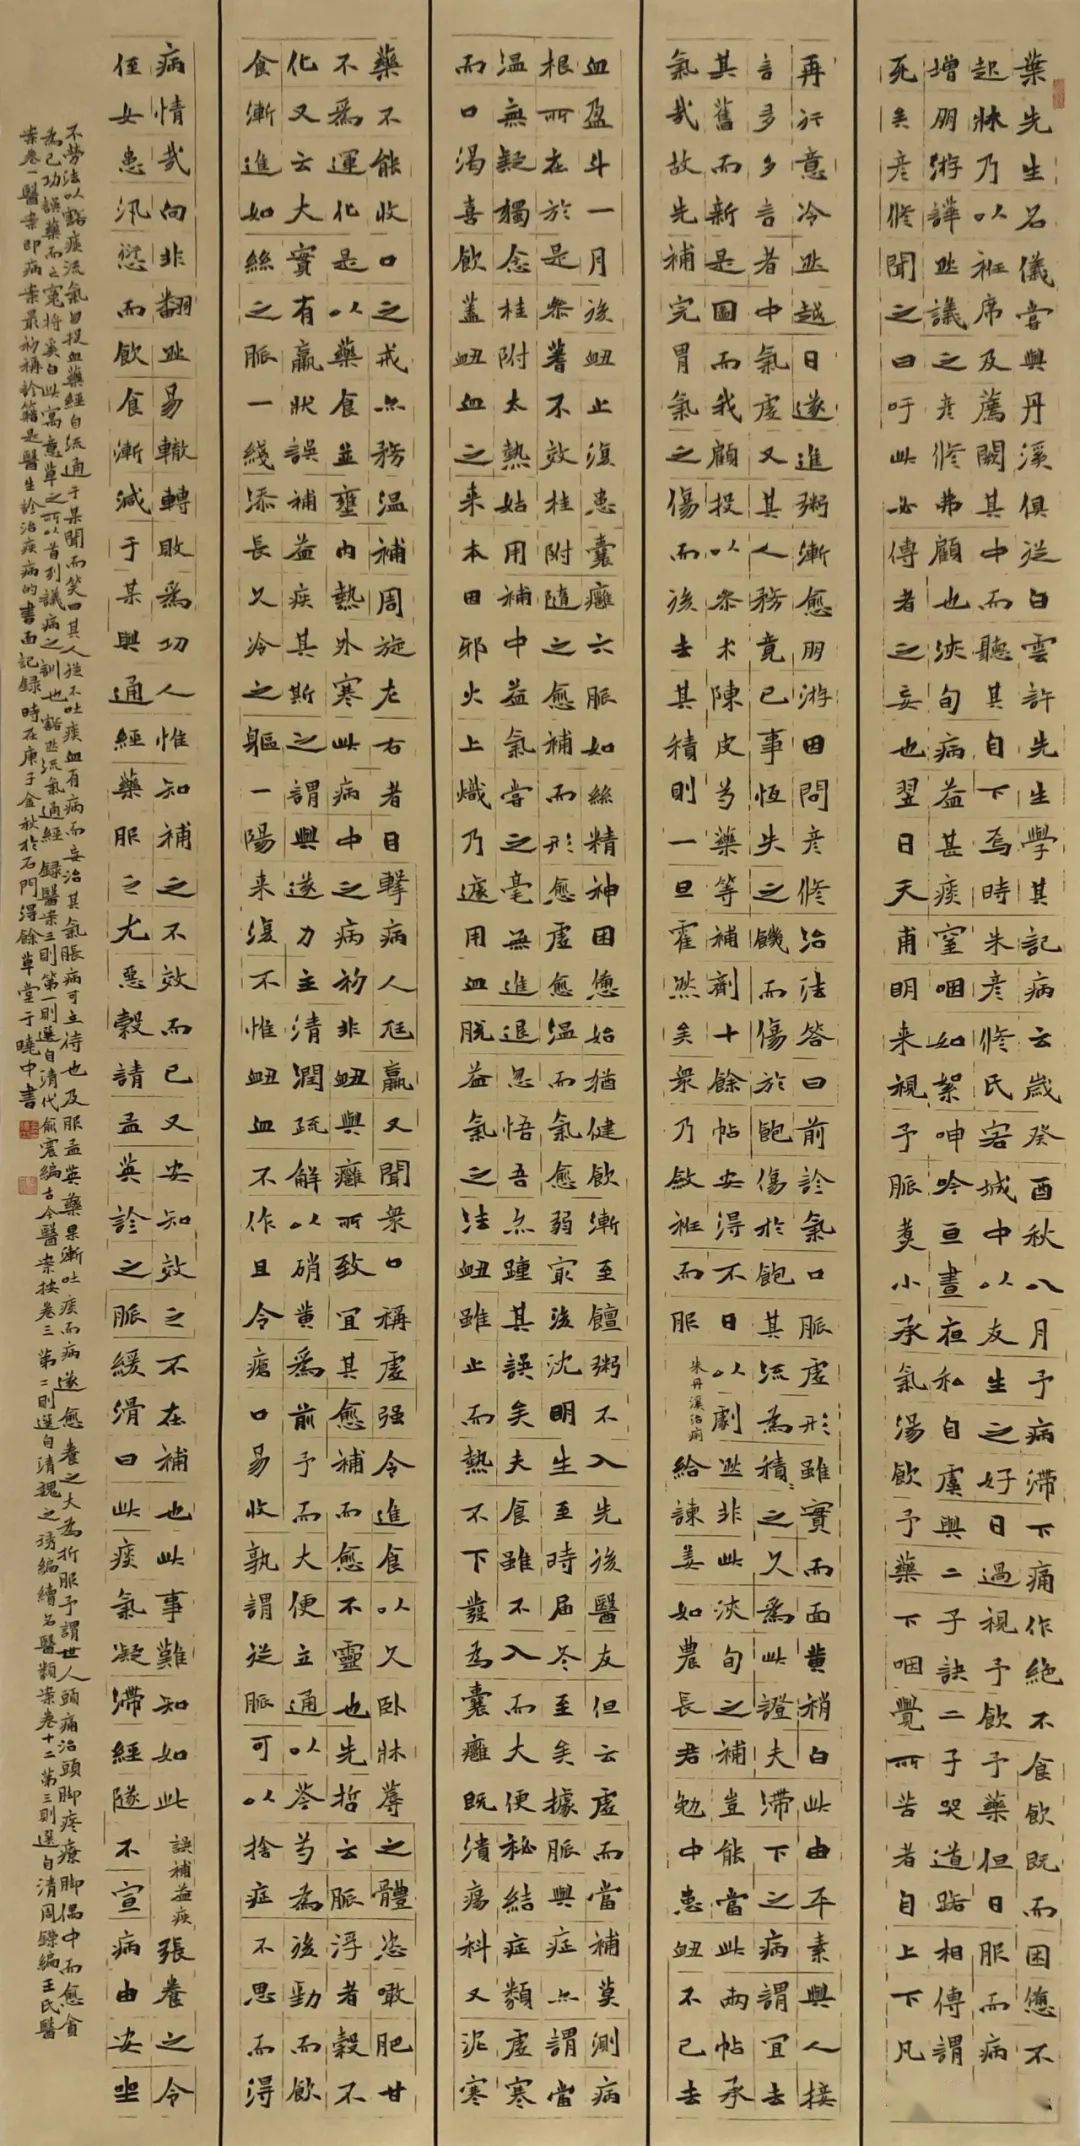 葉先生名儀嘗與丹溪俱從白雲許先生學其記病云歲癸酉秋八月予病滯下痛作絕不食飲既而困憊不
起牀乃以袵席及薦闕其中而聽其自下焉時朱彥修氏客城中以友生之好日過視予飲予藥但日服而病
增朋游譁然議之彥修弗顧也浹旬病益甚痰窒咽如絮呻吟亘晝夜私自虞與二子訣二子哭道路相傳謂
死矣彥修聞之曰吁此必傳者之妄也翌日天甫明来視予脈煑小承氣湯飲予藥下咽覺所苦者自上下凡
再行意冷然越日遂進粥漸愈朋游因問彥修治法答曰前診氣口脈虛形雖實而面黄稍白此由平素與人接
言多多言者中氣虛又其人務竟已事恆失之饑而傷於飽傷於飽其流為積之久為此證夫滯下之病謂宜去
其舊而新是圖而我顧投以參术陳皮芍藥等補劑十餘帖安得不日以劇然非此浹旬之補豈能當此兩帖承
氣哉故先補完胃氣之傷而後去其積則一旦霍然矣衆乃斂袵而服 朱丹溪治痢 給諫姜如農長君勉中患衄不已去
血盈斗一月後衄止復患囊癰六脈如絲精神困憊始猶健飲漸至饘粥不入先後醫友但云虛而當補莫測病
根所在於是參蓍不效桂附隨之愈補而形愈虛愈溫而氣愈弱最後沈明生至時届冬至矣據脈與症亦謂當
溫無疑獨念桂附太熱姑用補中益氣嘗之毫無進退忽悟吾亦踵其誤矣夫食雖不入而大便秘結症類虛寒
而口渴喜飲蓋衄血之来本因邪火上熾乃遽用血脫益氣之法衄雖止而熱不下發為囊癰既潰瘍科又泥寒
藥不能收口之戒亦務溫補周旋左右者目擊病人尫羸又聞衆口稱虛强令進食以久卧牀蓐之體恣噉肥甘
不為運化是以藥食並壅内熱外寒此病中之病初非衄與癰所致宜其愈補而愈不靈也先哲云脈浮者穀不
化又云大實有羸狀誤補益疾其斯之謂與遂力主清潤疏解以硝黄為前矛而大便立通以芩芍為後勁而飲
食漸進如絲之脈一綫添長久冷之軀一陽来復不惟衄血不作且令瘡口易收孰謂從脈可以捨症不思而得
病情哉向非翻然易轍轉敗為功人惟知補之不效而已又安知效之不在補也此事難知如此 誤補益疾 張養之令
侄女患汛愆而飲食漸減于某與通經藥服之尤惡穀請孟英診之脈緩滑曰此痰氣凝滯經隧不宣病由安坐
不勞法以豁痰流氣勿投血藥經自流通于某聞而笑曰其人從不吐痰血有病而妄治其氣脹病可立待也及服孟英藥果漸吐痰而病遂愈養之大為折服予謂世人頭痛治頭脚疼療脚偶中而愈貪
為己功誤藥而亡冤將奚白此寓意草之所以首列議病之訓也 豁然流氣通經 録醫案三則第一則選自清代俞震編古今醫案按卷三第二則選自清魏之琇編續名醫類案卷十二第三則選自清周鑅編王氏醫
案卷一醫案即病案最初稱診籍是醫生診治疾病的書面記録時在庚子金秋於石門得餘草堂于曉中書